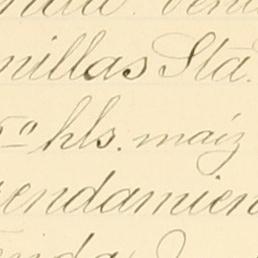 millas Sta.
5º hls. maíz
endamien